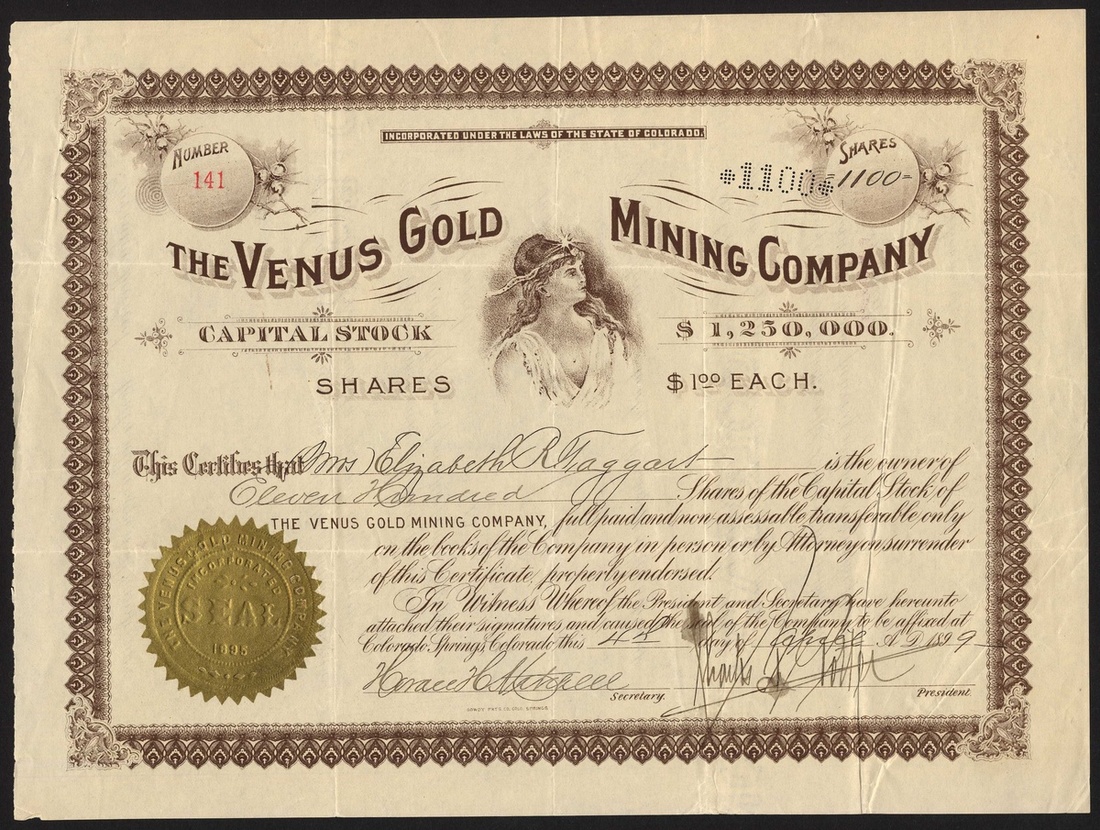 INCORPORATED UNDER THE LAWS OF THE STATE OF COLORADO.
NUMBER
141
SHARES
=1100=
*1100*
THE VENUS GOLD MINING COMPANY
CAPITAL STOCK $ 1,250,000.
SHARES $1.00 EACH.
This Certifies that Mrs Elizabeth R Taggart is the owner of
Eleven Hundred Shares of the Capital Stock of
THE VENUS GOLD MINING COMPANY, full paid and non assessable transferable only
on the books of the Company in person or by Attorney on surrender
of this Certificate, properly endorsed.
In Witness Whereof the President and Secretary have hereunto
attached their signatures and caused the seal of the Company to be affixed at
Colorado Springs, Colorado this 4th day of A.D. 1899
Horace H
Secretary. President.
THE VENUS GOLD MINING COMPANY
INCORPORATED
SEAL
1895